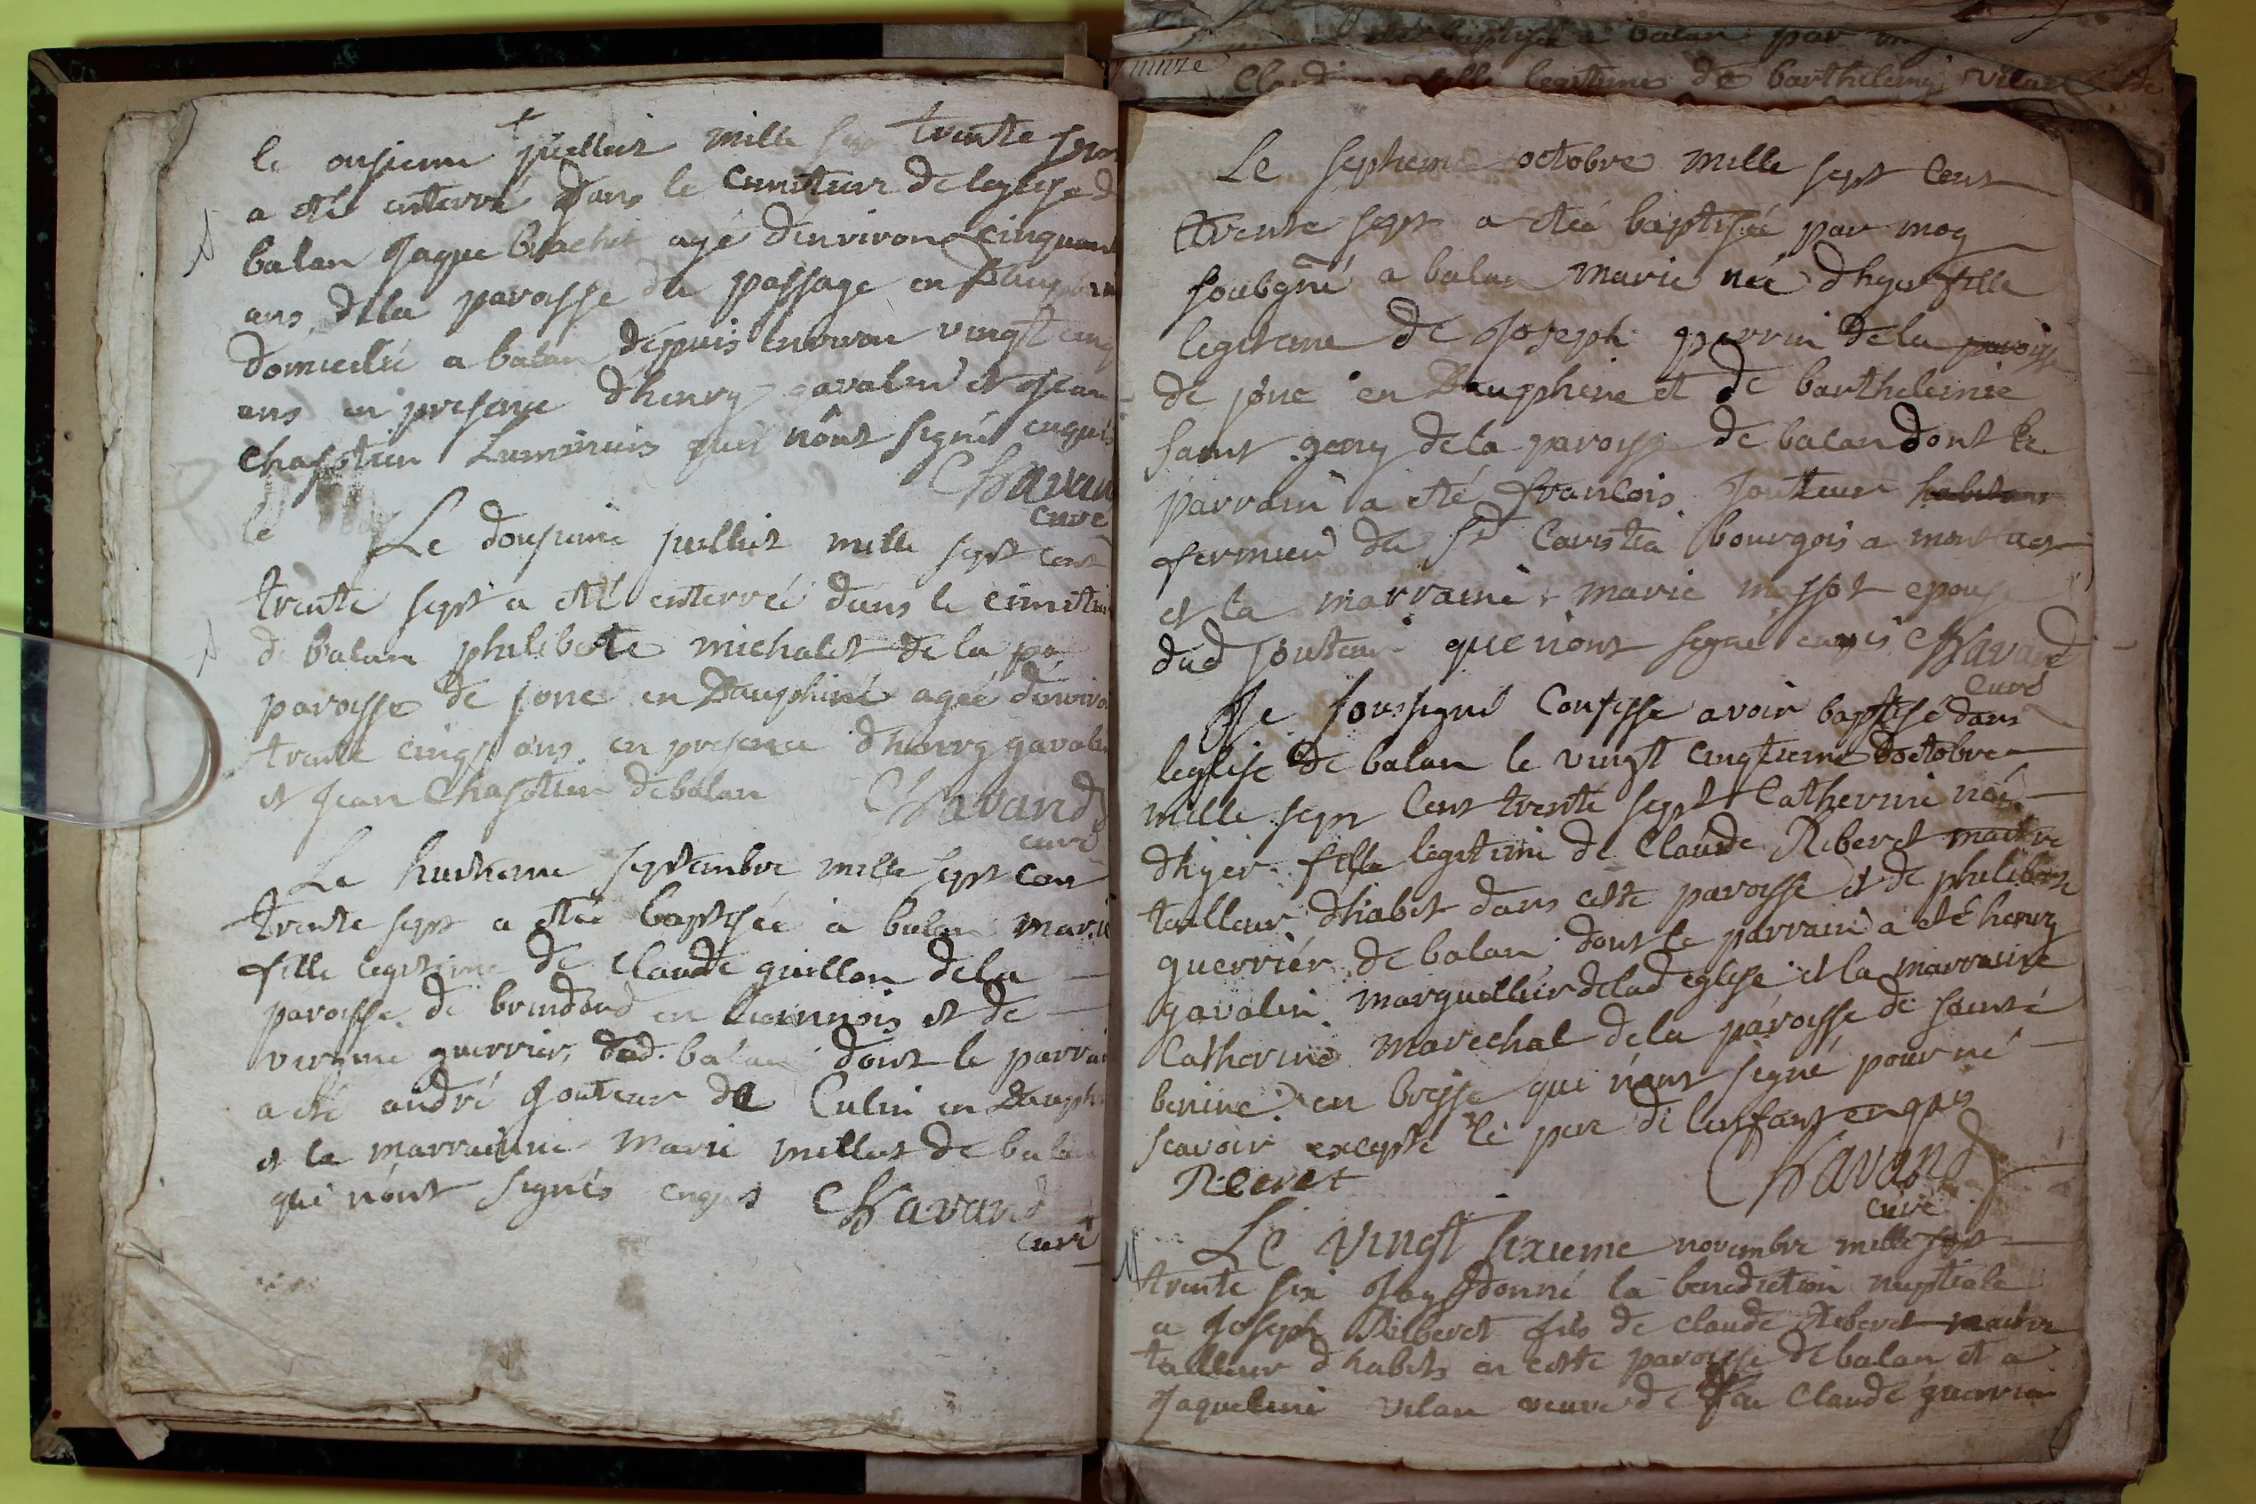 le onsieme juilliet mille sep trente sept
a eté enterré dans le cimitier de leglise d
balan Jaque Brachet agé denviron cinquant
ans dela paroisse du passage en Dauphin
domicilié a balan depuis environ vingt cinq
ans en presence dhenry gavalin et Jean
Chasottier Luminiers qui nônt signé enquis
Chavand
curé
le
Le dousieme juilliet mille sept cent
trente sept a eté enterréé dans le cimitier
de balan philiberte michalet de la pa
paroisse de jone en Dauphiné ageé denviron
trente cinq ans en presence dhenry gavalin
et Jean Chasottier de balan Chavand
curé
Le huitieme septembre mille sept cent
trente sept a eteé baptiséé a balan marie
fille legitime de claude guillon dela
paroisse de brindond en lionnois et de
virgine guerrier dud. balan dont le parrain
a eté andré Jouteur de Culin en Dauph
et la marrainne marie millet de balan
qui nônt signés enquis Chavand
curé
nuire
baptisé a balan par
legitime de barthelemi vilan
Le septieme octobre mille sept cent
trente sept a eteé baptiséé par moy
soubgné a balan marie néé dhyer fille
legiteme de Joseph perrin dela paroisse
de jone en Dauphine et de barthelemie
saint geny dela paroisse de balan dont le
parrain a eté francois Jouteur habitant
fermier du Sr Caristia bourgois a montuel
et la marraine marie massot epouse
dud jouteur que nont signe enquis Chavand
curé
Je soussigné Confesse avoir baptisé dans
leglise de balan le vingt cinqtieme doctobre
mille sept cent trente sept Catherine néé
dhyer fille legitime de Claude Reberet maitre
tailleur dhabit dans cette paroisse et de philiberte
guerriér de balan dont le parrain a eté henry
gavalin marguilliér delad eglise et la marraine
Catherine marechal dela paroisse de sainté
benine en bresse qui nônt signé pour né
scavoir excepté le pere de lenfant enquis
Reberet Chavand
curé
Le vingt sixieme novembre mille sept
trente six Jay donné la benediction nuptiale
a Joseph Reberet fils de claude Reberet maitre
tailleur dhabits en cette paroisse de balan et a
Jaqueleine vilan veuve de feu Claude guerrier